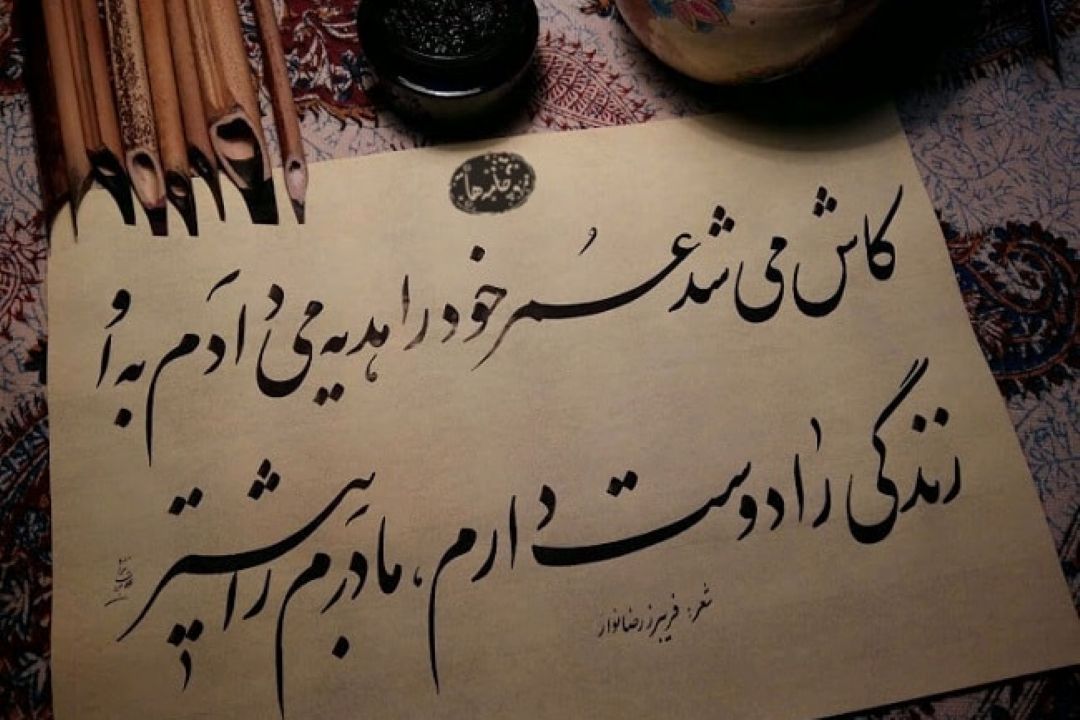 کاش می شد عُمر خود را هدیه می دادَم به اُو
زندگی را دوست دارم، مادَرم را بیشتر
شعر: فریبرز رضانوار